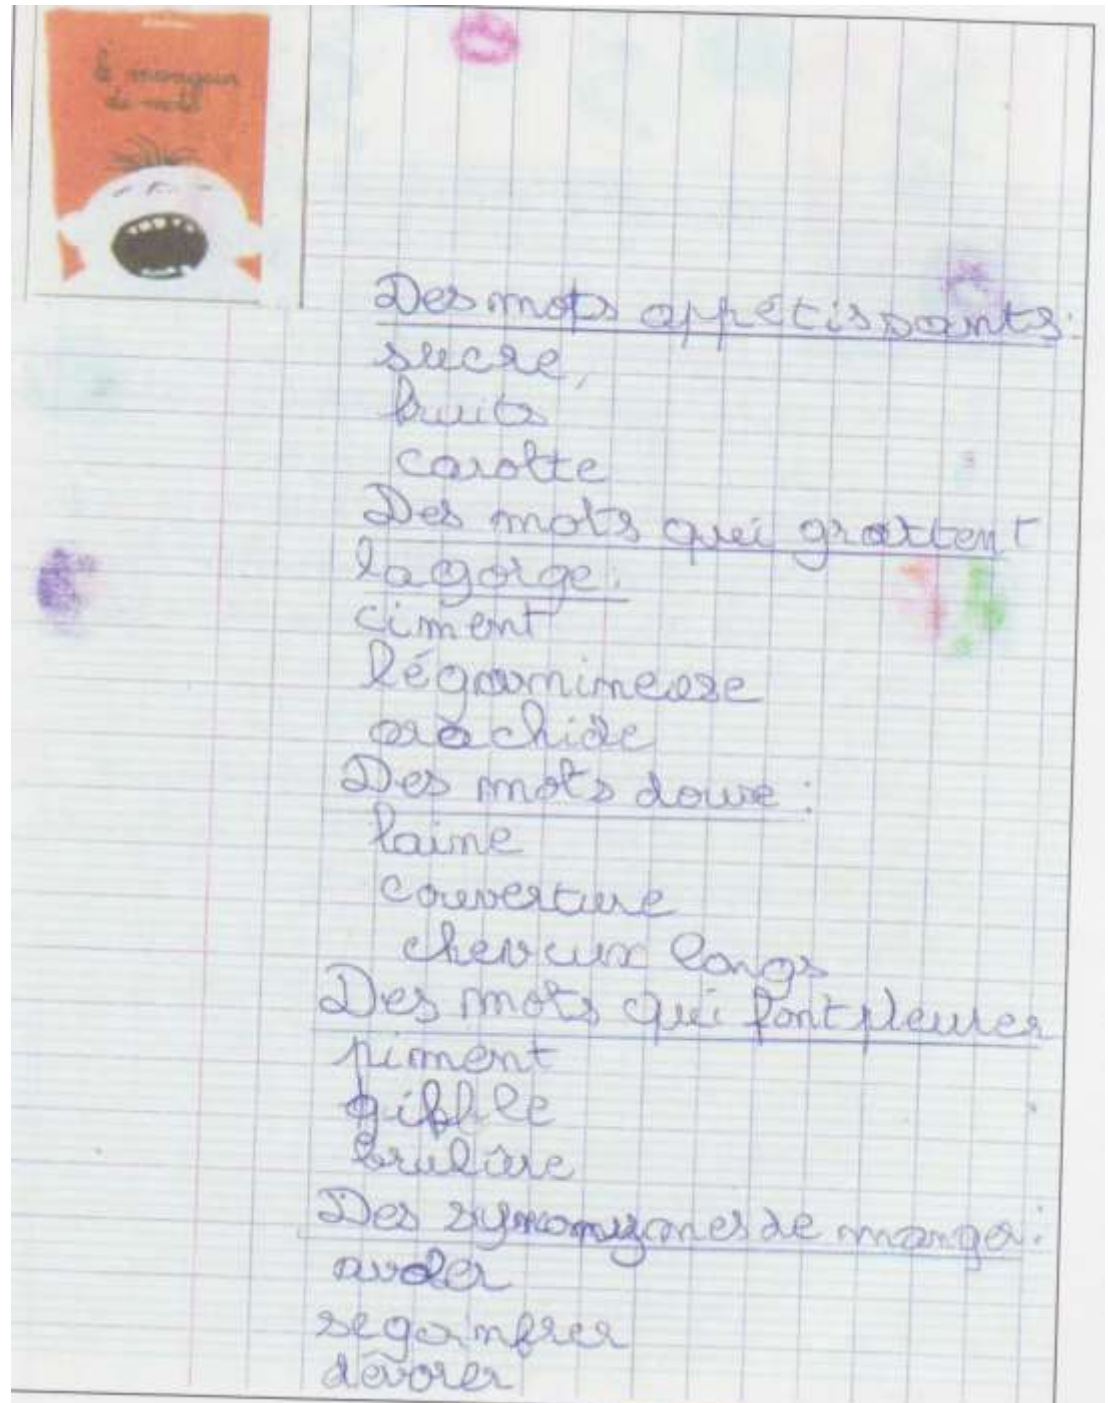 le mangeur
de mots
Des mots appétissants:
sucre,
fruits
carotte
Des mots qui grattent
la gorge:
ciment
légumineuse
arachide
Des mots doux :
laine
couverture
cheveux longs
Des mots qui font pleurer
piment
giffle
brulure
Des synonymes de manger:
avaler
se gainfrer
dévorer